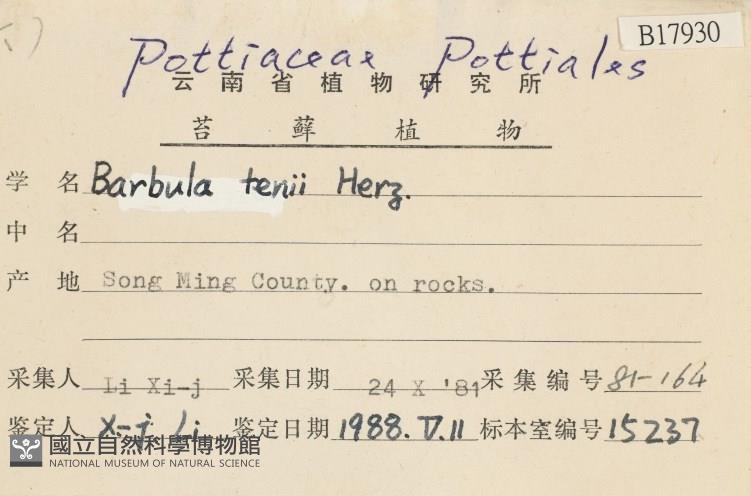 B17930
Pottiaceae Pottiales
云南省植物研究所
苔藓植物
学名 Barbula tenii Herz.
中名
产地 Song Ming County. on rocks.
采集人 Li Xi-j 采集日期 24 X '81 采集编号 81-164
鉴定人 X-j Li 鉴定日期 1988.V.11 标本室编号 15237
國立自然科學博物館
NATIONAL MUSEUM OF NATURAL SCIENCE